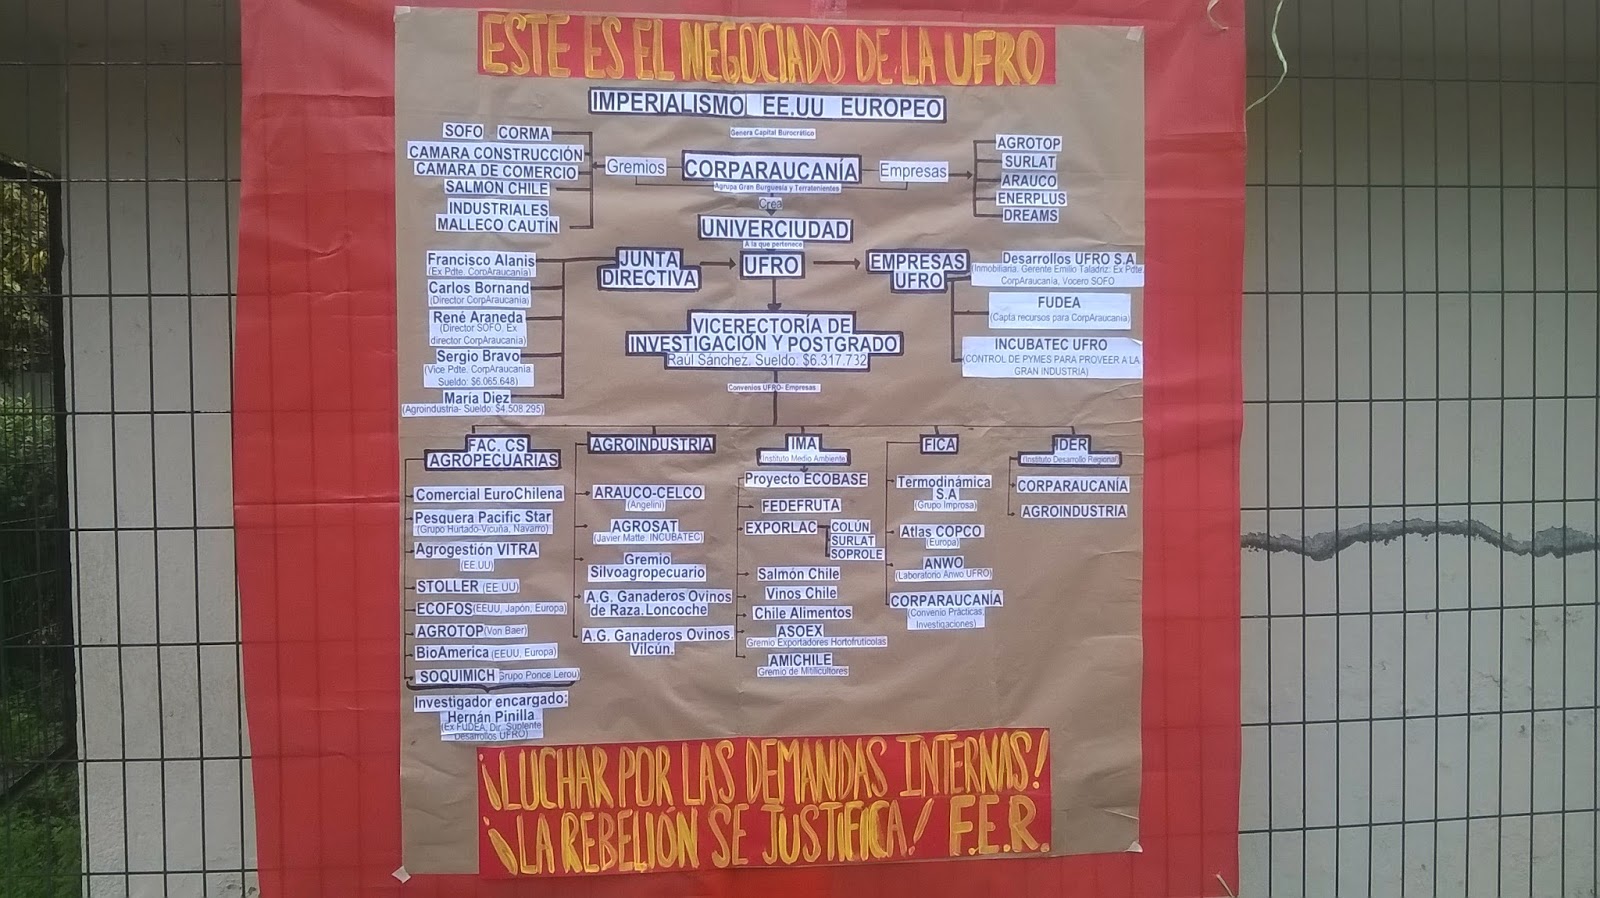 ESTE ES EL NEGOCIADO DE LA UFRO
IMPERIALISMO EE.UU EUROPEO
Genera Capital Burocrático
SOFO CORMA
CAMARA CONSTRUCCIÓN
CAMARA DE COMERCIO
SALMON CHILE
INDUSTRIALES
MALLECO CAUTÍN
Gremios
CORPARAUCANÍA
Agrupa Gran Burguesía y Terratenientes
Empresas
AGROTOP
SURLAT
ARAUCO
ENERPLUS
DREAMS
Crea
UNIVERCIUDAD
A la que pertenece
UFRO
JUNTA
DIRECTIVA
Francisco Alanis
(Ex Pdte. CorpAraucanía)
Carlos Bornand
(Director CorpAraucanía)
René Araneda
(Director SOFO. Ex
director CorpAraucanía)
Sergio Bravo
(Vice Pdte. CorpAraucanía.
Sueldo: $6.065.648)
María Diez
(Agroindustria- Sueldo: $4.508.295)
EMPRESAS
UFRO
Desarrollos UFRO S.A
(Inmobiliaria. Gerente Emilio Taladriz: Ex Pdte.
CorpAraucanía, Vocero SOFO
FUDEA
(Capta recursos para CorpAraucanía)
INCUBATEC UFRO
(CONTROL DE PYMES PARA PROVEER A LA
GRAN INDUSTRIA)
VICERECTORÍA DE
INVESTIGACIÓN Y POSTGRADO
Raúl Sánchez. Sueldo. $6.317.732
Convenios UFRO- Empresas
FAC. CS
AGROPECUARIAS
Comercial EuroChilena
Pesquera Pacific Star
(Grupo Hurtado-Vicuña, Navarro)
Agrogestión VITRA
(EE.UU)
STOLLER (EE.UU)
ECOFOS (EEUU, Japón, Europa)
AGROTOP (Von Baer)
BioAmerica (EEUU, Europa)
SOQUIMICH (Grupo Ponce Lerou)
Investigador encargado:
Hernán Pinilla
(Ex FUDEA, Dir. Suplente
Desarrollos UFRO)
AGROINDUSTRIA
ARAUCO-CELCO
(Angelini)
AGROSAT
(Javier Matte. INCUBATEC)
Gremio
Silvoagropecuario
A.G. Ganaderos Ovinos
de Raza. Loncoche
A.G. Ganaderos Ovinos.
Vilcún.
IMA
(Instituto Medio Ambiente)
Proyecto ECOBASE
FEDEFRUTA
EXPORLAC
COLÚN
SURLAT
SOPROLE
Salmón Chile
Vinos Chile
Chile Alimentos
ASOEX
Gremio Exportadores Hortofrutícolas
AMICHILE
Gremio de Mitilicultores
FICA
Termodinámica
S.A
(Grupo Improsa)
Atlas COPCO
(Europa)
ANWO
(Laboratorio Anwo UFRO)
CORPARAUCANÍA
(Convenio Prácticas,
Investigaciones)
IDER
(Instituto Desarrollo Regional)
CORPARAUCANÍA
AGROINDUSTRIA
¡LUCHAR POR LAS DEMANDAS INTERNAS!
¡LA REBELIÓN SE JUSTIFICA! F.E.R.